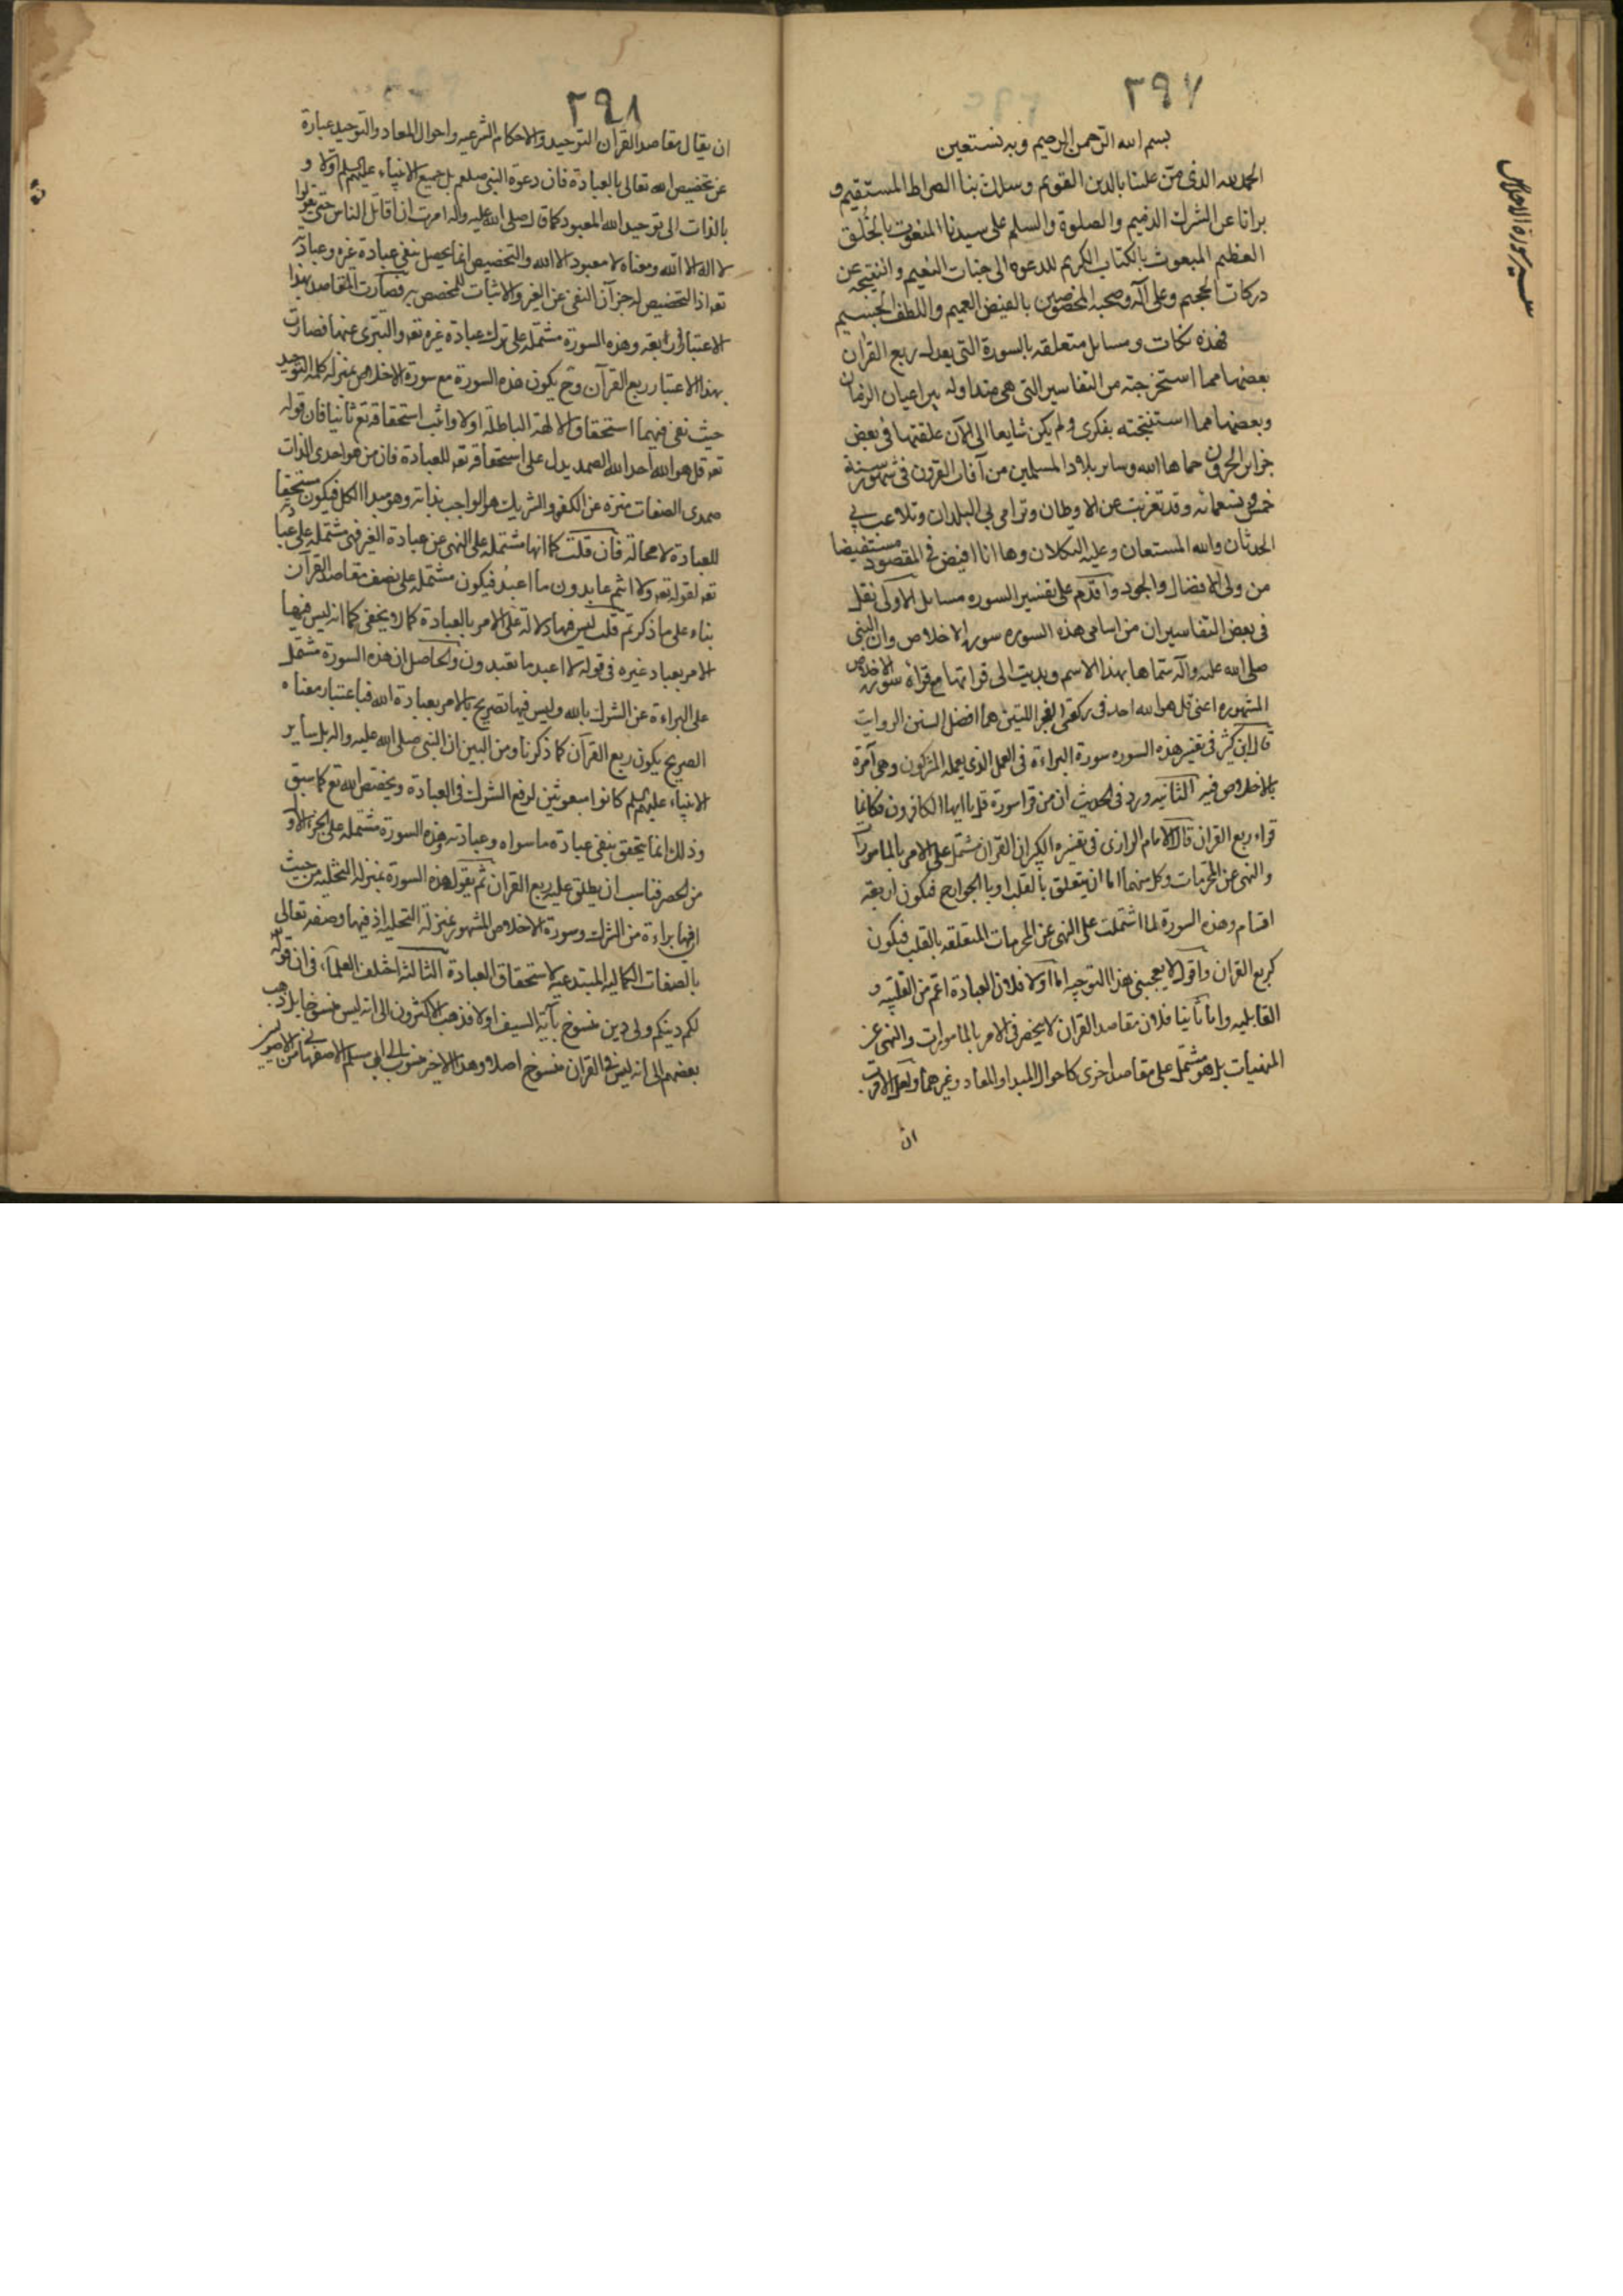 ٢٩٧
بسم الله الرحمن الرحيم وبه نستعين
الحمد لله الذى منّ علينا بالدين القويم وسلك بنا الصراط المستقيم و
برانا عن الشرك الذميم والصلوة والسلم على سيدنا المنعوت بالخُلق
العظيم المبعوث بالكتاب الكريم للدعوه الى جنات النعيم و عن
دركات الجحيم وعلى آله وصحبه المخصوصين بالفيض العميم واللطف الجسيم
فهذه نكات ومسايل متعلقه بالسورة التى يعدل ربع القران
بعضها مما استخرجته من التفاسير التى هى متداوله بين اعيان الزمان
وبعضها مما استنتجته بفكرى ولم يكن شايعا الى الآن علقتها فى بعض
جزاير الجرون حماها الله وساير بلاد المسلمين من آفات القرون فى شهور سنة
خمس وتسعمائه وقد تغربت عن الاوطان وترامى بى البلدان وتلاعب بى
الحدثان والله المستعان وعليه التكلان وها انا افيض فى المقصود مستفيضا
من ولى الافضال والجود واقدم على تفسير السوره مسايل الاولى نقل
فى بعض التفاسير ان من اسامى هذه السوره سورة الاخلاص وان النبى
صلى الله عليه وآله سماها بهذا الاسم وبديت الى قراتها مع قراة سورة الاخلاص
المشهوره اعنى قل هو الله احد فى ركعتى الفجر اللتين هما افضل السنن الرواتب
قال ابن كثير فى تفسير هذه السوره سورة البراءة فى العمل الذى يعمله المشركون وهى آمرة
بالاخلاص فيه الثانيه ورد فى الحديث ان من قرا سورة قل يا ايها الكافرون فكانما
قراء ربع القران قال الامام الرازى فى تفسيره الكبير ان القران مشتمل على الامر بالمامورات
والنهى عن المحرمات وكل منهما اما ان يتعلق بالقلب او بالجوارح فيكون اربعة
اقسام وهذه السورة لما اشتملت على النهى عن المحرمات المتعلقه بالقلب فيكون
كربع القران واقول لا يعجبنى هذا التوجيه اما اولا فلان العبادة اعم من القلبيه و
القالبيه واما ثانيا فلان مقاصد القران لا ينحصر فى الامر بالمامورات والنهى عن
المنهيات بل هو مشتمل على مقاصد اخرى كاحوال المبدا والمعاد وغيرهما ولعل الاقرب
ان
تفسير سورة الاخلاص
٢٩٨
ان يقال مقاصد القران التوحيد والاحكام الشرعيه واحوال المعاد والتوحيد عبارة
عن تخصيص الله تعالى بالعبادة فان دعوة النبى صلعم بل جميع الانبياء عليهم السلم اولا و
بالذات الى توحيد الله المعبود كما قال صلى الله عليه واله امرت ان اقاتل الناس حتى يقولوا
لا اله الا الله ومعناه لا معبود الا الله والتخصيص انما يحصل بنفى عبادة غيره وعبادته
تعه اذ التخصيص له جزآن النفى عن الغير والاثبات للمخصص به فصارت المقاصد بهذا
الاعتبار اربعة وهذه السورة مشتمله على ترك عبادة غيره تعه والتبرى عنها فصارت
بهذا الاعتبار ربع القرآن وح يكون هذه السورة مع سورة الاخلاص بمنزله كلمه التوحيد
حيث نفى فيهما استحقاق الالهة الباطلة اولا واثبت استحقاقه تع ثانيا فان قوله
تعه قل هو الله احد الله الصمد يدل على استحقاقه تعه للعبادة فان من هو احدى الذات
صمدى الصفات منزه عن الكفو والشريك هو الواجب بذاته وهو مبدا الكل فيكون مستحقا
للعبادة لا محالة فان قلت كما انها مشتمله على النهى عن عبادة الغير فهى مشتمله على عبادة
تعه لقوله تعه ولا انتم عابدون ما اعبد فيكون مشتمله على نصف مقاصد القرآن
بناء على ما ذكرتم قلت ليس فيها دلالة على الامر بالعبادة كما لا يخفى كما انه ليس فيها
الامر بعباد غيره فى قوله لا اعبد ما تعبدون والحاصل ان هذه السورة مشتمل
على البراءة عن الشرك بالله وليس فيها تصريح بالامر بعبادة الله فباعتبار معناه
الصريح يكون ربع القرآن كما ذكرنا ومن البين ان النبى صلى الله عليه واله بل ساير
الانبياء عليهم السلم كانوا مبعوثين لرفع الشرك فى العبادة وتخصيص الله تع كما سبق
وذلك انما يتحقق بنفى عبادة ما سواه وعبادته وهذه السورة مشتمله على الجزء الاول
من الحصر فناسب ان يطلق عليه ربع القران ثم نقول هذه السورة بمنزله التخليه من حيث
ان فيها براءة من الشرك وسورة الاخلاص المشهوره بمنزلة التحليه اذ فيها وصفه تعالى
بالصفات الكماليه المستدعيه لاستحقاق العبادة الثالثه اختلف العلماء فى ان قوله تعه
لكم دينكم ولى دين منسوخ بآية السيف او لا فذهب الاكثرون الى انه ليس منسوخا بل ذهب
بعضهم الى انه ليس فى القران منسوخ اصلا وهذا الاخير منسوب الى ابى مسلم الاصفهانى من الاصوليين